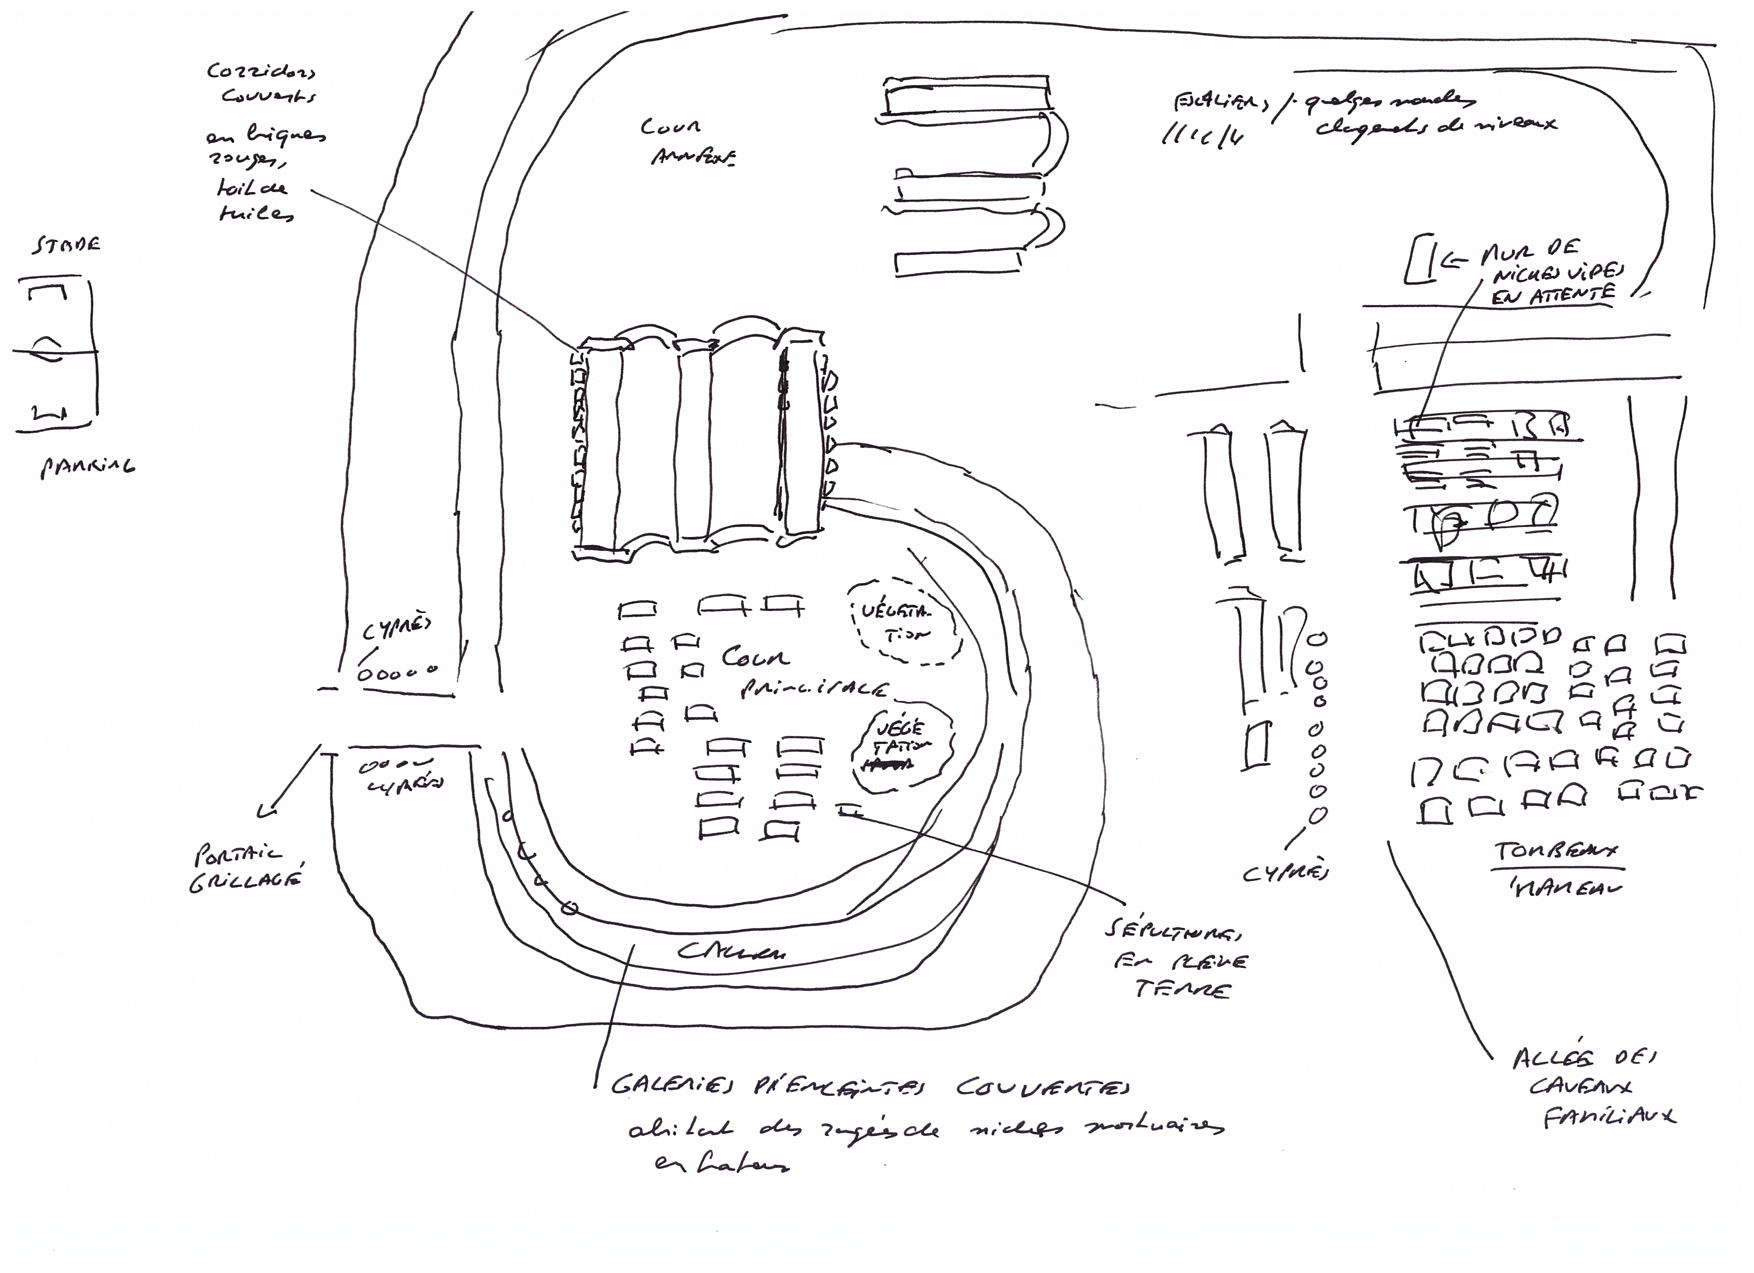 Corridors
couverts
en briques
rouges,
toit de
tuiles
COUR
ANNEXE
ESCALIERS / quelques marches
changements de niveaux
STADE
PARKING
MUR DE
NICHES VIDES
EN ATTENTE
CYPRÈS
CYPRÈS
PORTAIL
GRILLAGÉ
VÉGÉTA-
TION
COUR
PRINCIPALE
VÉGÉ
TATION
CYPRÈS
TOMBEAUX
HAMEAU
SÉPULTURES
EN PLEINE
TERRE
GALERIES D'ENCEINTES COUVERTES
abritant des rangées de niches mortuaires
en hauteur
ALLÉE DES
CAVEAUX
FAMILIAUX